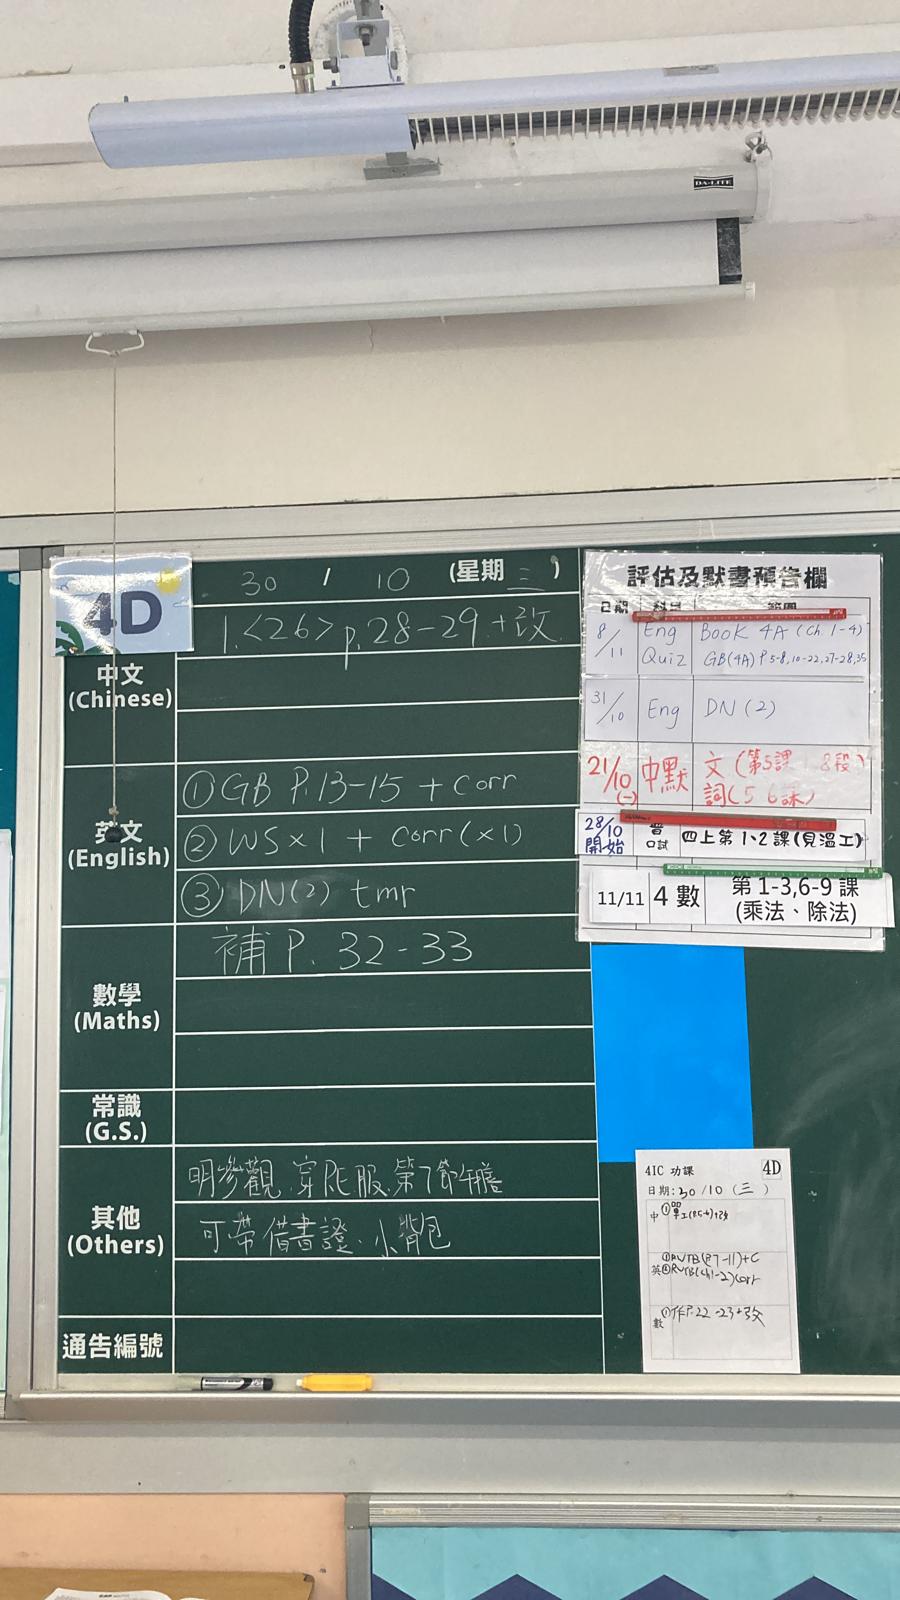 DA-LITE
4D
30 / 10 (星期三)
中文
(Chinese)
1.<26> p.28-29.+改
英文
(English)
①GB P.13-15 + corr
②WS×1 + corr(×1)
③DN(2) tmr
數學
(Maths)
補P. 32-33
常識
(G.S.)
其他
(Others)
明參觀.穿PE服.第7節午膳
可帶借書證.小背包
通告編號
評估及默書預告欄
日期 科目 範圍
8/11 Eng Quiz Book 4A (Ch.1-4)
GB(4A) P.5-8,10-22,27-28,35
31/10 Eng DN (2)
21/10 (一) 中默 文(第5課 8段)
詞(5 6課)
28/10 開始 普 口試 四上第1、2課(見溫工)
11/11 4數 第1-3,6-9課
(乘法、除法)
4IC 功課 4D
日期:30/10 (三)
中 ①單工(P.5-6)+改
英 ①
②
corr
數 ①作P.22-23+改